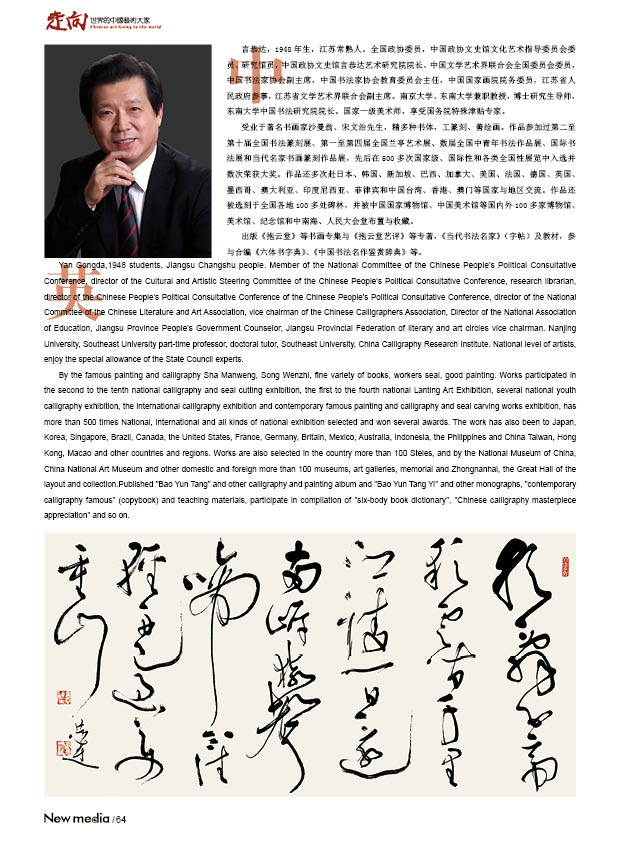 走向世界的中國藝術大家
Chinese art Going to the world
言恭达，1948 年生，江苏常熟人。全国政协委员，中国政协文史馆文化艺术指导委员会委
员、研究馆员，中国政协文史馆言恭达艺术研究院院长，中国文学艺术界联合会全国委员会委员，
中国书法家协会副主席，中国书法家协会教育委员会主任，中国国家画院院务委员，江苏省人
民政府参事，江苏省文学艺术界联合会副主席。南京大学、东南大学兼职教授，博士研究生导师，
东南大学中国书法研究院院长。国家一级美术师，享受国务院特殊津贴专家。
受业于著名书画家沙曼翁、宋文治先生，精多种书体，工篆刻、善绘画。作品参加过第二至
第十届全国书法篆刻展、第一至第四届全国兰亭艺术展、数届全国中青年书法作品展、国际书
法展和当代名家书画篆刻作品展，先后在 500 多次国家级、国际性和各类全国性展览中入选并
数次荣获大奖。作品还多次赴日本、韩国、新加坡、巴西、加拿大、美国、法国、德国、英国、
墨西哥、澳大利亚、印度尼西亚、菲律宾和中国台湾、香港、澳门等国家与地区交流。作品还
被选刻于全国各地 100 多处碑林，并被中国国家博物馆、中国美术馆等国内外 100 多家博物馆、
美术馆、纪念馆和中南海、人民大会堂布置与收藏。
出版《抱云堂》等书画专集与《抱云堂艺评》等专著，《当代书法名家》（字帖）及教材，参
与合编《六体书字典》、《中国书法名作鉴赏辞典》等。
中
英
Yan Gongda,1948 students, Jiangsu Changshu people. Member of the National Committee of the Chinese People's Political Consultative
Conference, director of the Cultural and Artistic Steering Committee of the Chinese People's Political Consultative Conference, research librarian,
director of the Chinese People's Political Consultative Conference of the Chinese People's Political Consultative Conference, director of the National
Committee of the Chinese Literature and Art Association, vice chairman of the Chinese Calligraphers Association, Director of the National Association
of Education, Jiangsu Province People's Government Counselor, Jiangsu Provincial Federation of literary and art circles vice chairman. Nanjing
University, Southeast University part-time professor, doctoral tutor, Southeast University, China Calligraphy Research Institute. National level of artists,
enjoy the special allowance of the State Council experts.
By the famous painting and calligraphy Sha Manweng, Song Wenzhi, fine variety of books, workers seal, good painting. Works participated in
the second to the tenth national calligraphy and seal cutting exhibition, the first to the fourth national Lanting Art Exhibition, several national youth
calligraphy exhibition, the international calligraphy exhibition and contemporary famous painting and calligraphy and seal carving works exhibition, has
more than 500 times National, international and all kinds of national exhibition selected and won several awards. The work has also been to Japan,
Korea, Singapore, Brazil, Canada, the United States, France, Germany, Britain, Mexico, Australia, Indonesia, the Philippines and China Taiwan, Hong
Kong, Macao and other countries and regions. Works are also selected in the country more than 100 Steles, and by the National Museum of China,
China National Art Museum and other domestic and foreign more than 100 museums, art galleries, memorial and Zhongnanhai, the Great Hall of the
layout and collection.Published "Bao Yun Tang" and other calligraphy and painting album and "Bao Yun Tang Yi" and other monographs, "contemporary
calligraphy famous" (copybook) and teaching materials, participate in compilation of "six-body book dictionary", "Chinese calligraphy masterpiece
appreciation" and so on.
朝辞白帝
彩云间千里
江陵一日还
两岸猿声
啼不住
轻舟已过万
重山
恭达
New media / 64